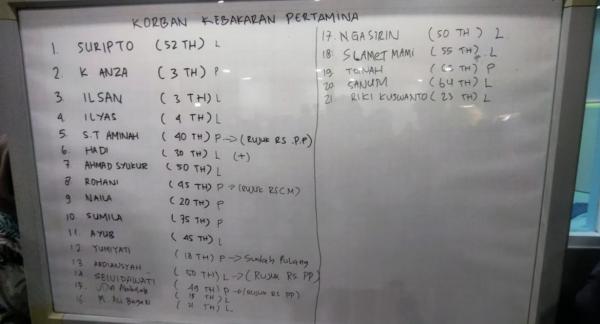 KORBAN KEBAKARAN PERTAMINA
1. SURIPTO (52 TH) L
2. K ANZA (3 TH) P
3. ILSAN (3 TH) L
4. ILYAS (4 TH) L
5. S.T AMINAH (40 TH) P → (RUJUK RS. P.P)
6. HADI (30 TH) L (+)
7 AHMAD SYUKUR (50 TH) L
8. ROHANI (45 TH) P → (RUJUK RSCM)
9 NAILA (20 TH) P
10. SUMILA (75 TH) P
11. AYUB (45 TH) L
12 YUMIYATI (18 TH) P → Sudah Pulang
13 ARDIANSYAH (50 TH) L → (RUJUK RS. PP)
14 (49 TH) P → (RUJUK RS PP)
15. (15 TH) L
16 M. Ali (21 TH) L
17. NGASIRIN (50 TH) L
18. SLAMET MAMI (55 TH) L
19. TH) P
20 SANUM (64 TH) L
21. RIKI KUSWANTO (23 TH) L